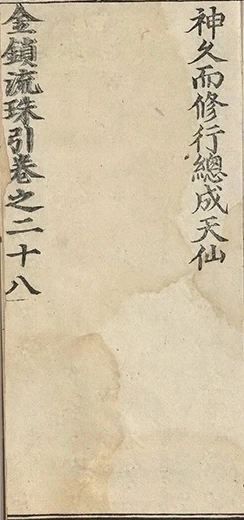 神久而修行總成天仙
金鎖流珠引卷之二十八